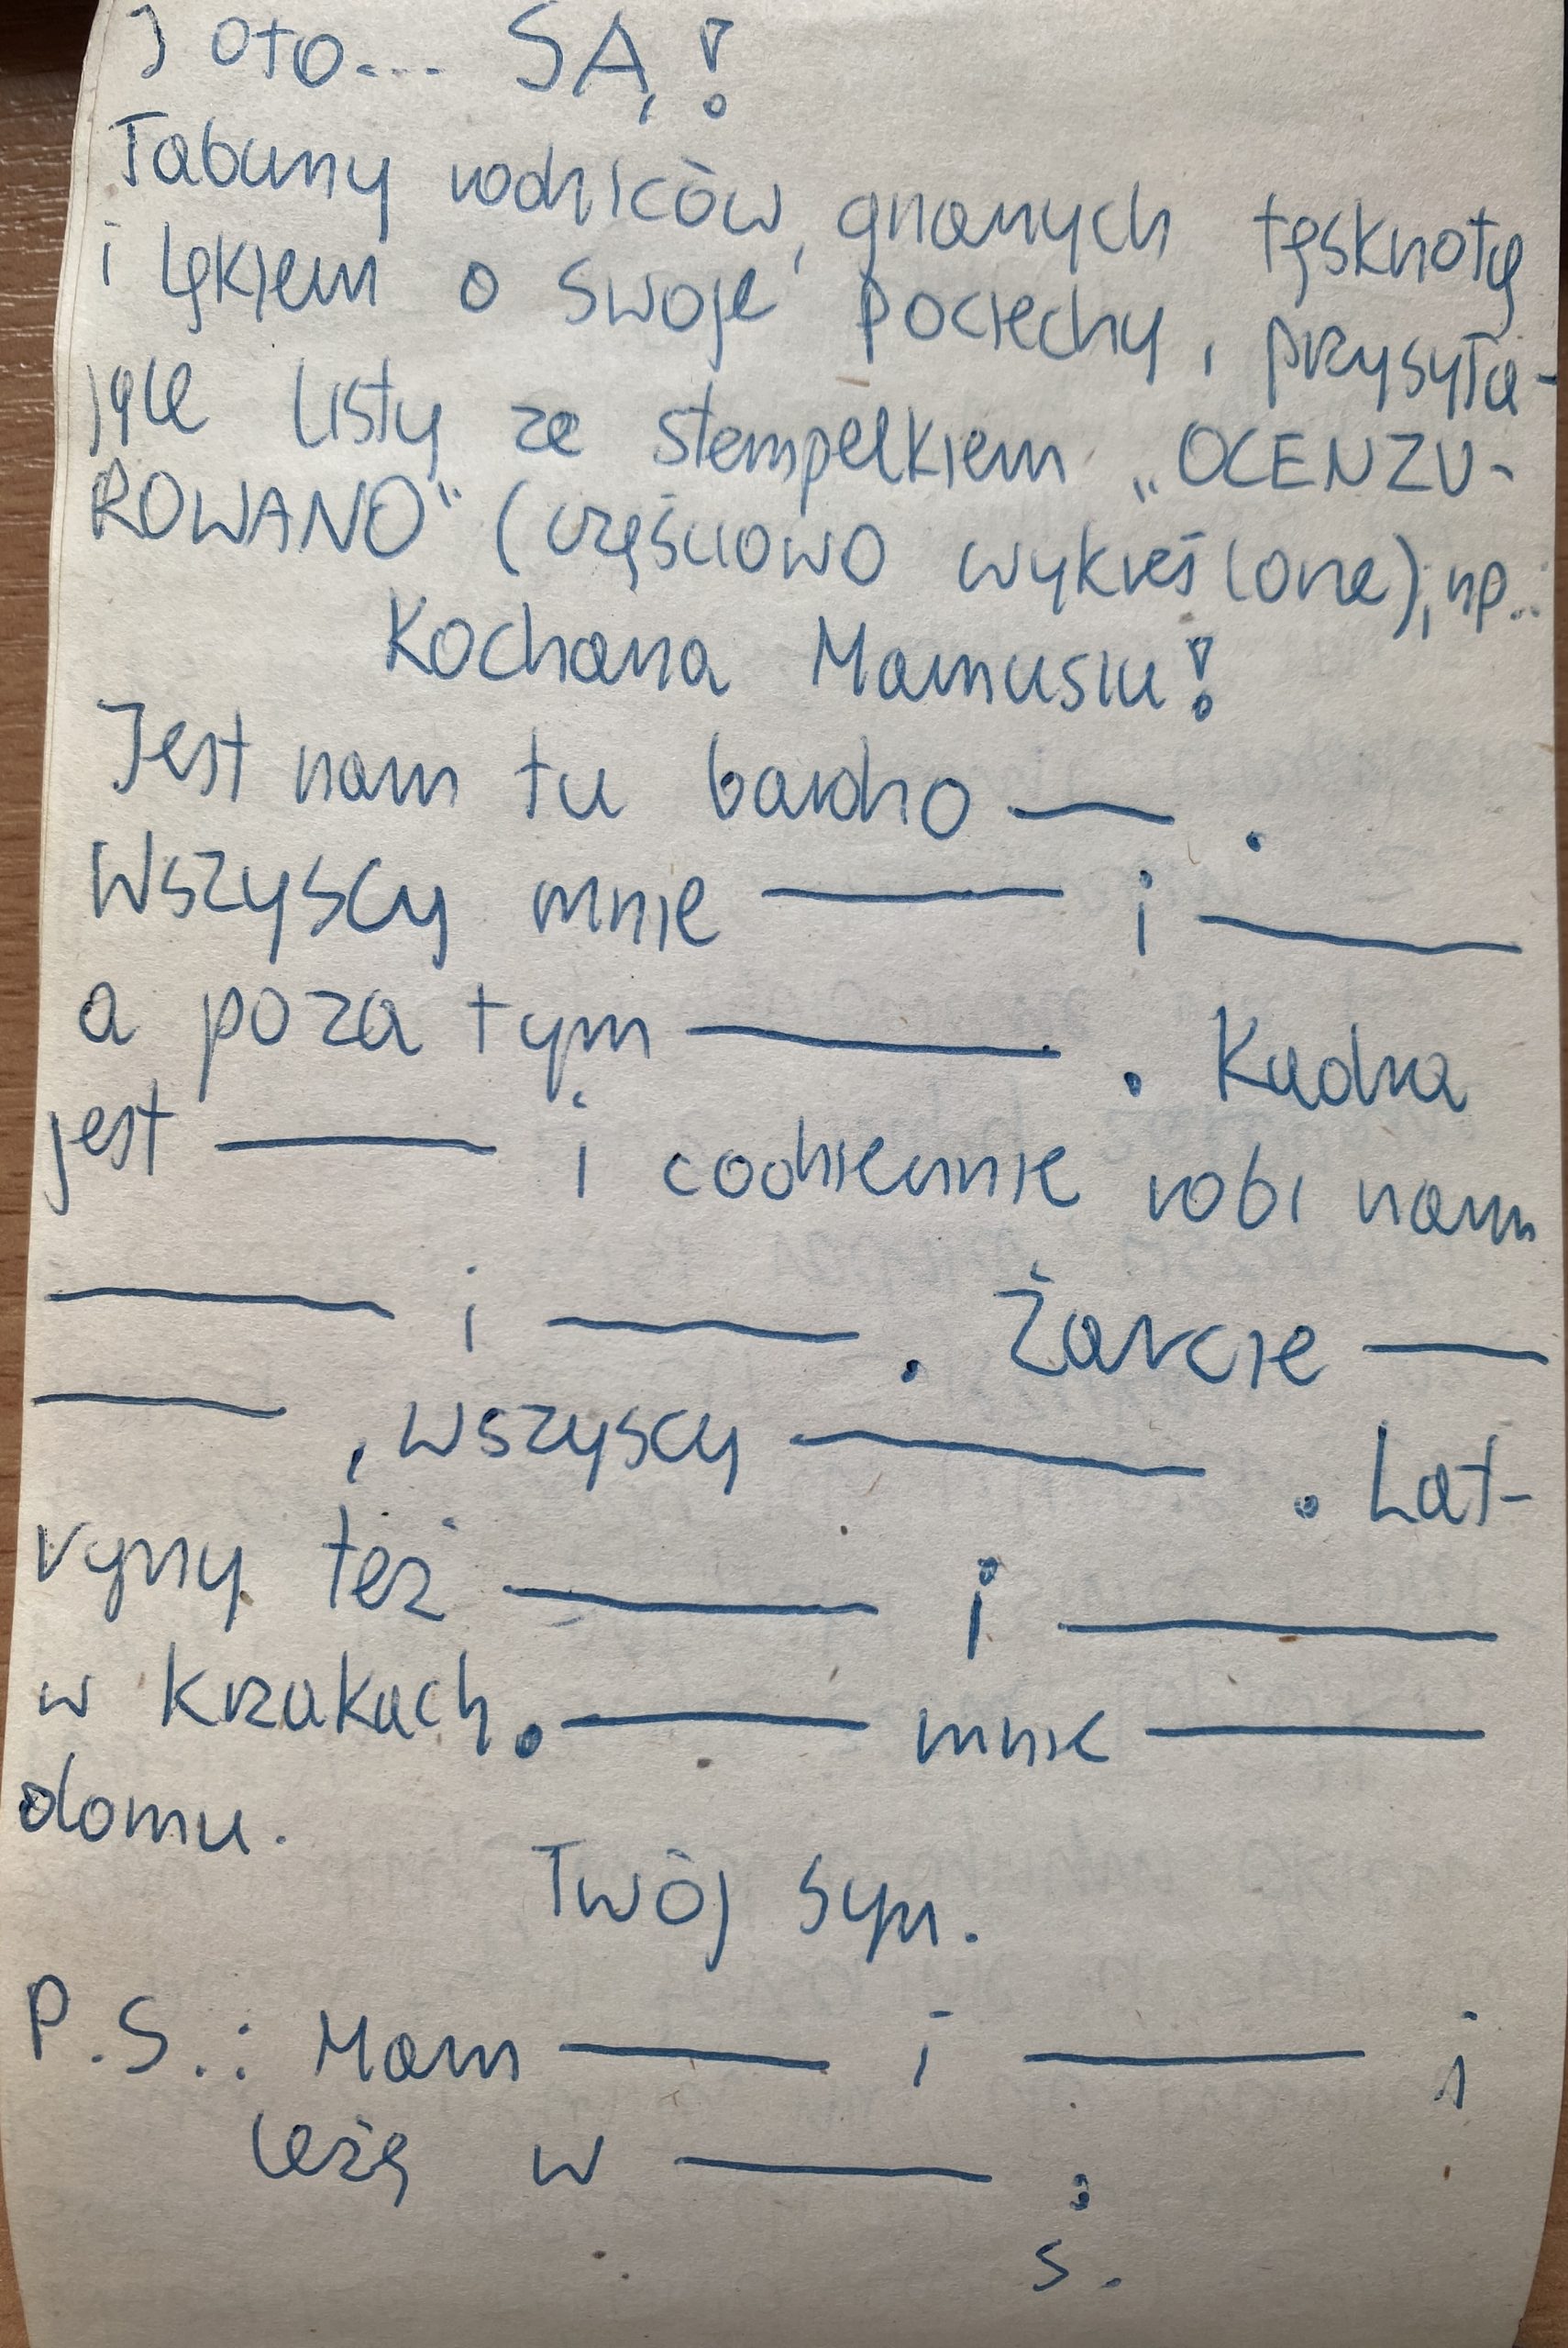 I oto... SĄ!
Tabuny rodziców, gnanych tęsknotą
i lękiem o swoje pociechy, przysyła-
jące listy ze stempelkiem „OCENZU-
ROWANO" (częściowo wykreślone), np.:
Kochana Mamusiu!
Jest nam tu bardzo ___ .
Wszyscy mnie ___ i ___
a poza tym ___ . Kadra
jest ___ i codziennie robi nam
___ i ___ . Żarcie ___
___ , wszyscy ___ . Lat-
ryny też ___ i ___
w krzakach. ___ mnie ___
domu.
Twój syn.
P.S.: Mam ___ i ___ i
leżę w ___ .
S.